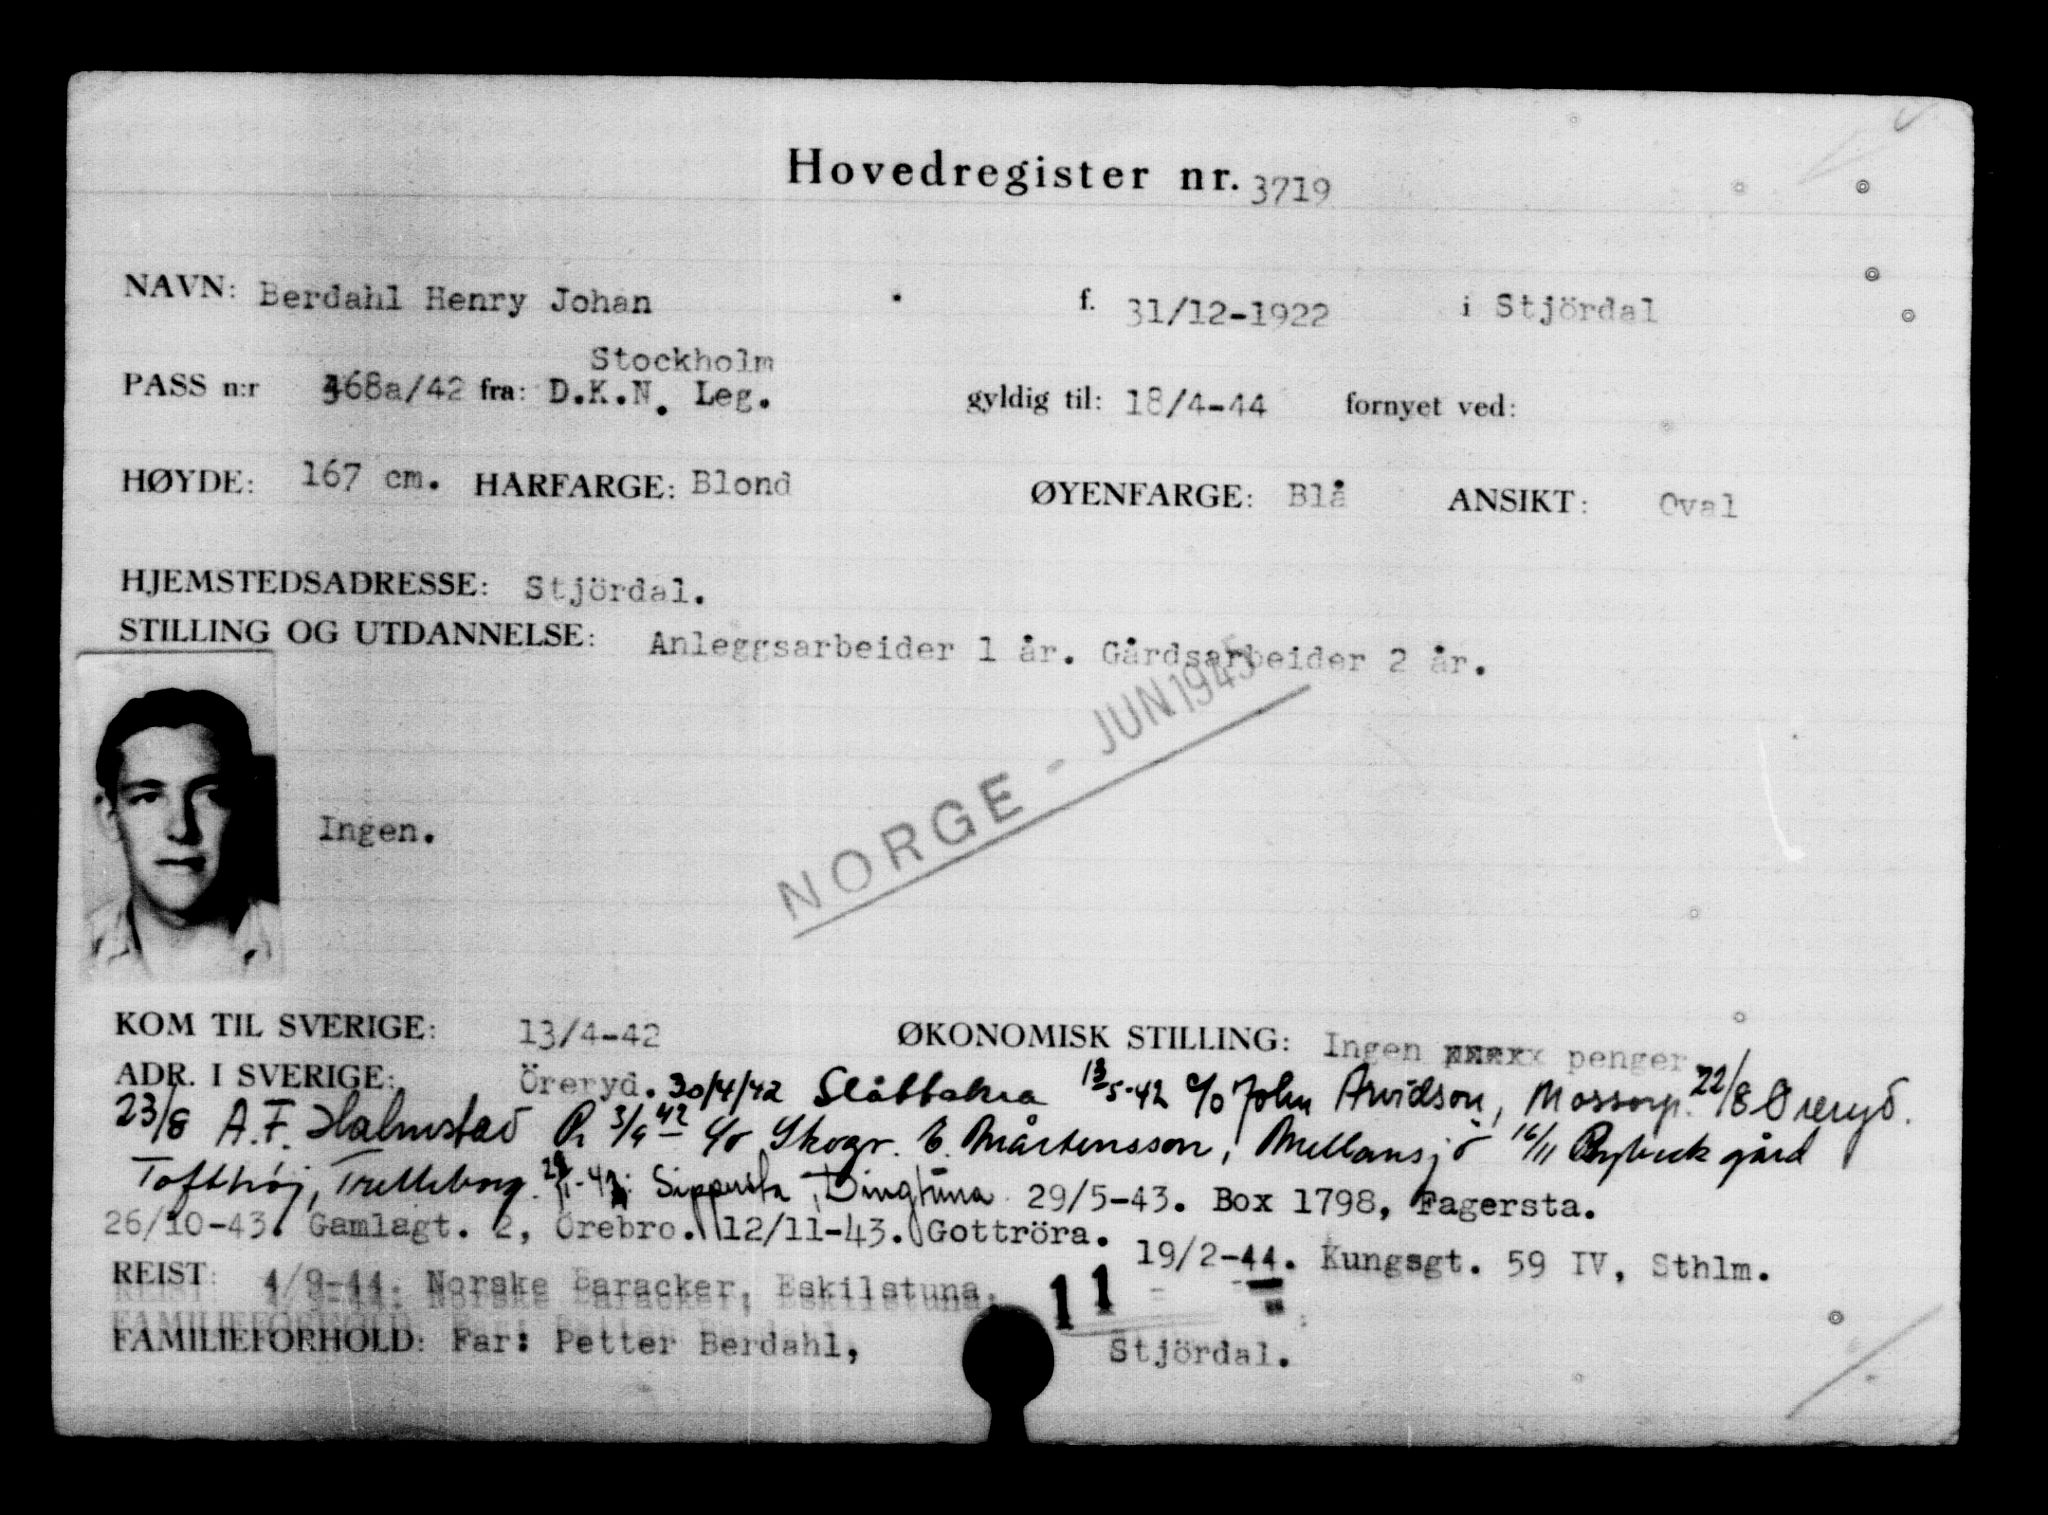 Hovedregister nr. 3719
NAVN: Berdahl Henry Johan f. 31/12-1922 i Stjördal
Stockholm
PASS n:r 468a/42 fra: D.K.N. Leg. gyldig til: 18/4-44 fornyet ved:
HØYDE: 167 cm. HARFARGE: Blond ØYENFARGE: Blå ANSIKT: Oval
HJEMSTEDSADRESSE: Stjördal.
STILLING OG UTDANNELSE: Anleggsarbeider 1 år. Gårdsarbeider 2 år.
NORGE - JUN 1945
Ingen.
KOM TIL SVERIGE: 13/4-42 ØKONOMISK STILLING: Ingen penger
ADR. I SVERIGE: Öreryd. 30/4/42 Slåttakra 5-42 c/o John Arvidson, Mossorp. 22/8 Öreryd.
23/8 A.F. Halmstad 3/9 42 c/o Skogv. E. Mårtensson, Mellansjö 16/11 gård
Tofthøj, Trelleborg. Sippersta, Dingtuna 29/5-43. Box 1798, Fagersta.
26/10-43. Gamlagt. 2, Örebro. 12/11-43. Gottröra.
19/2-44. Kungsgt. 59 IV, Sthlm.
REIST: 4/9-44. Norske Baracker, Eskilstuna. 11
FAMILIEFORHOLD: Far: Petter Berdahl, Stjördal.